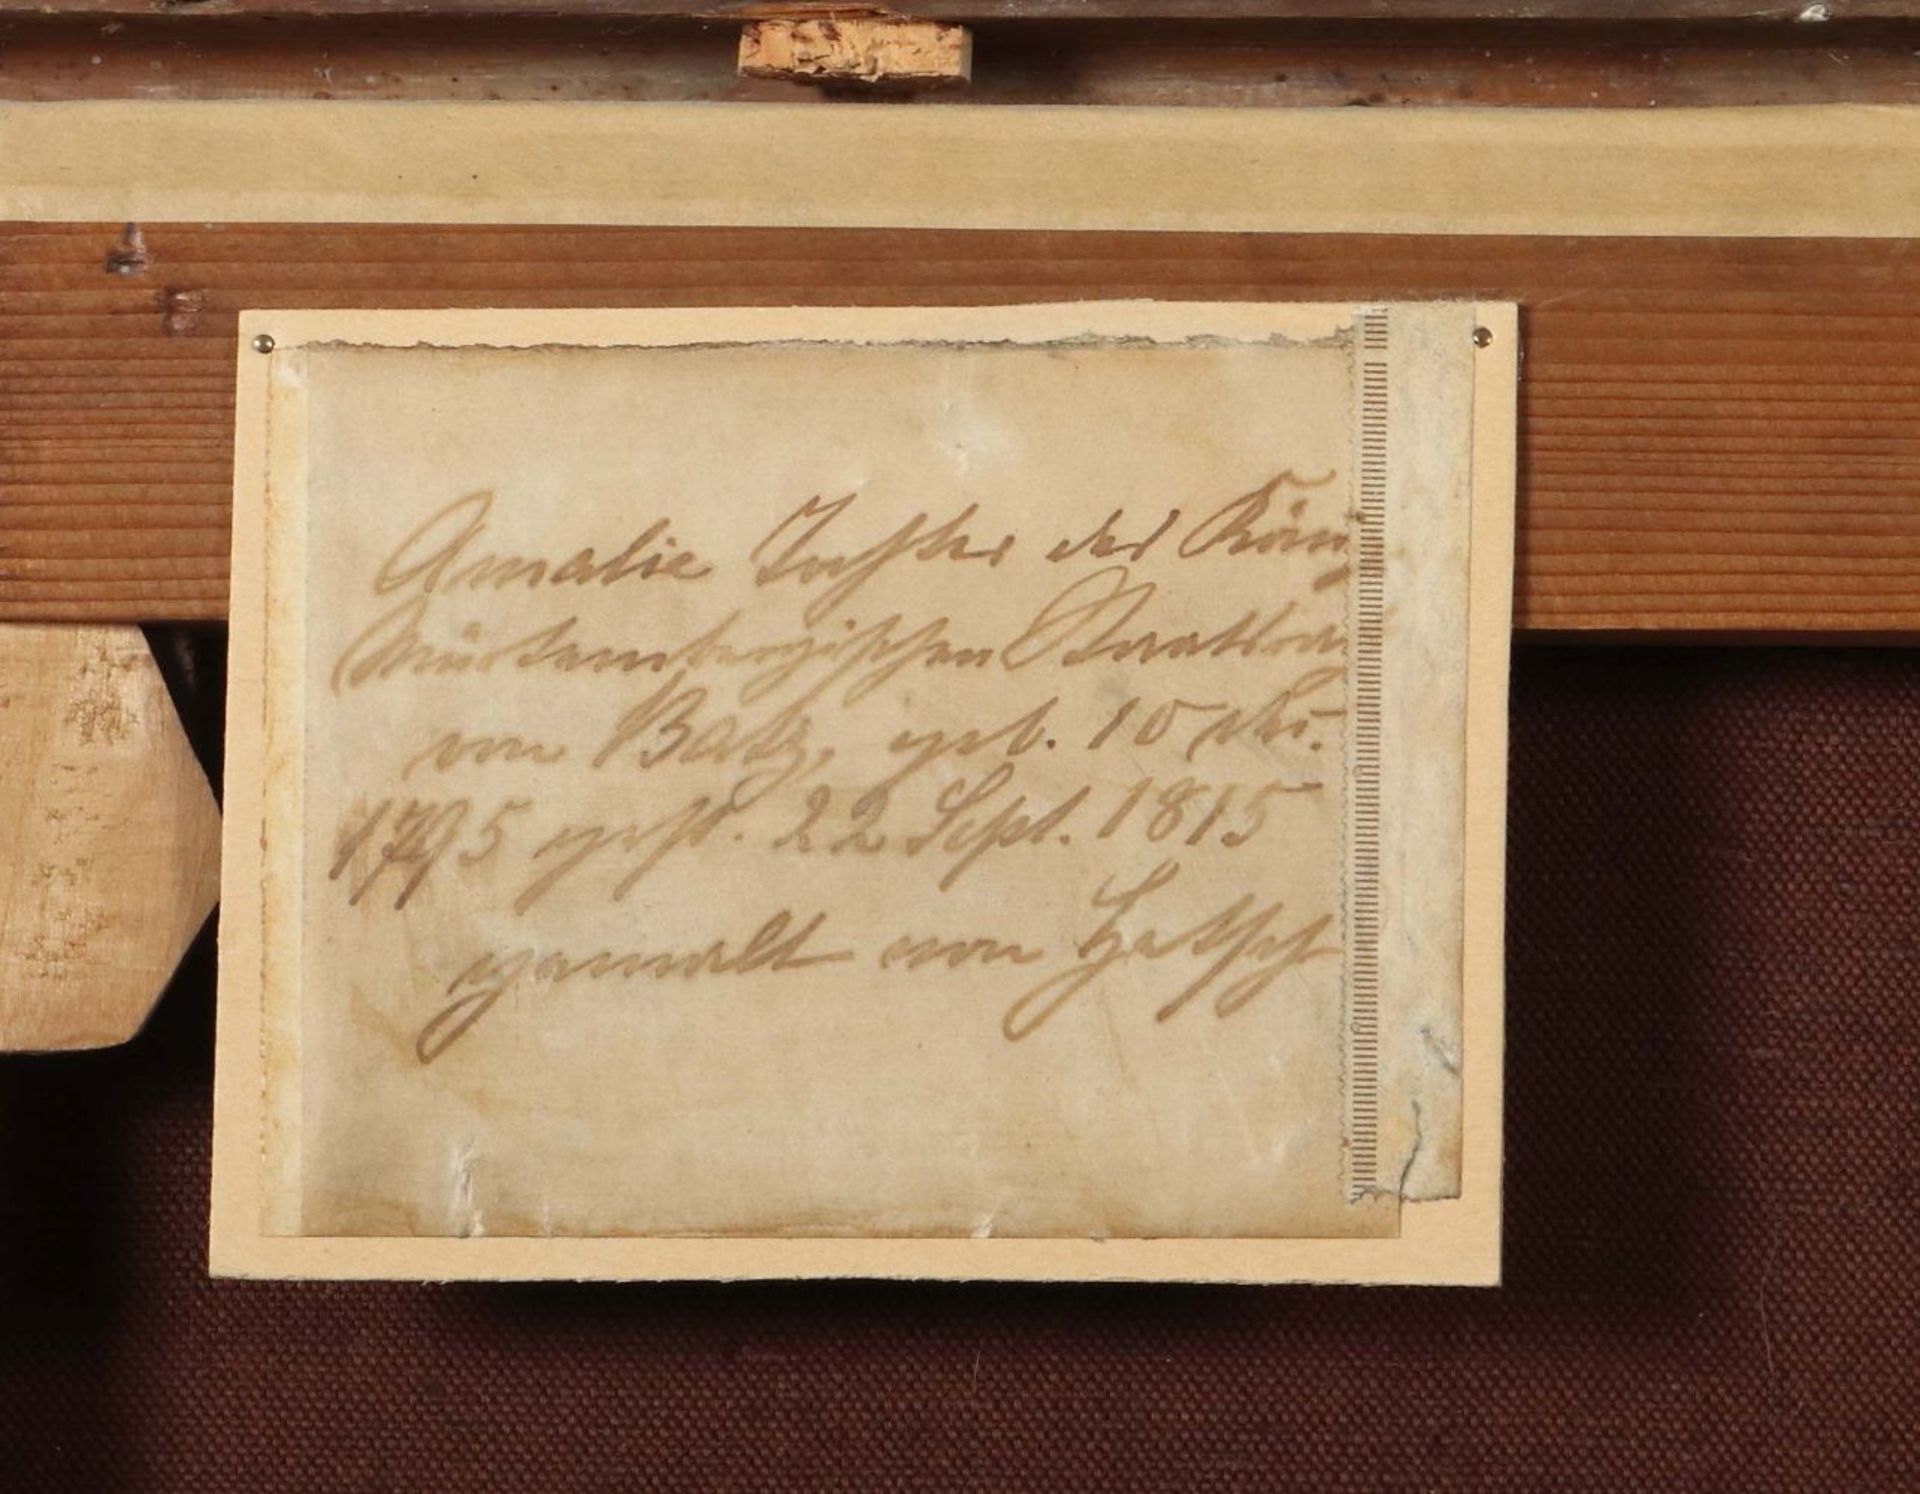 Amalie Tochter des König
Würtembergischen Staatsrat
von Batz, geb. 10
1795 gest. 22 Sept. 1815
gemalt von Hetsch